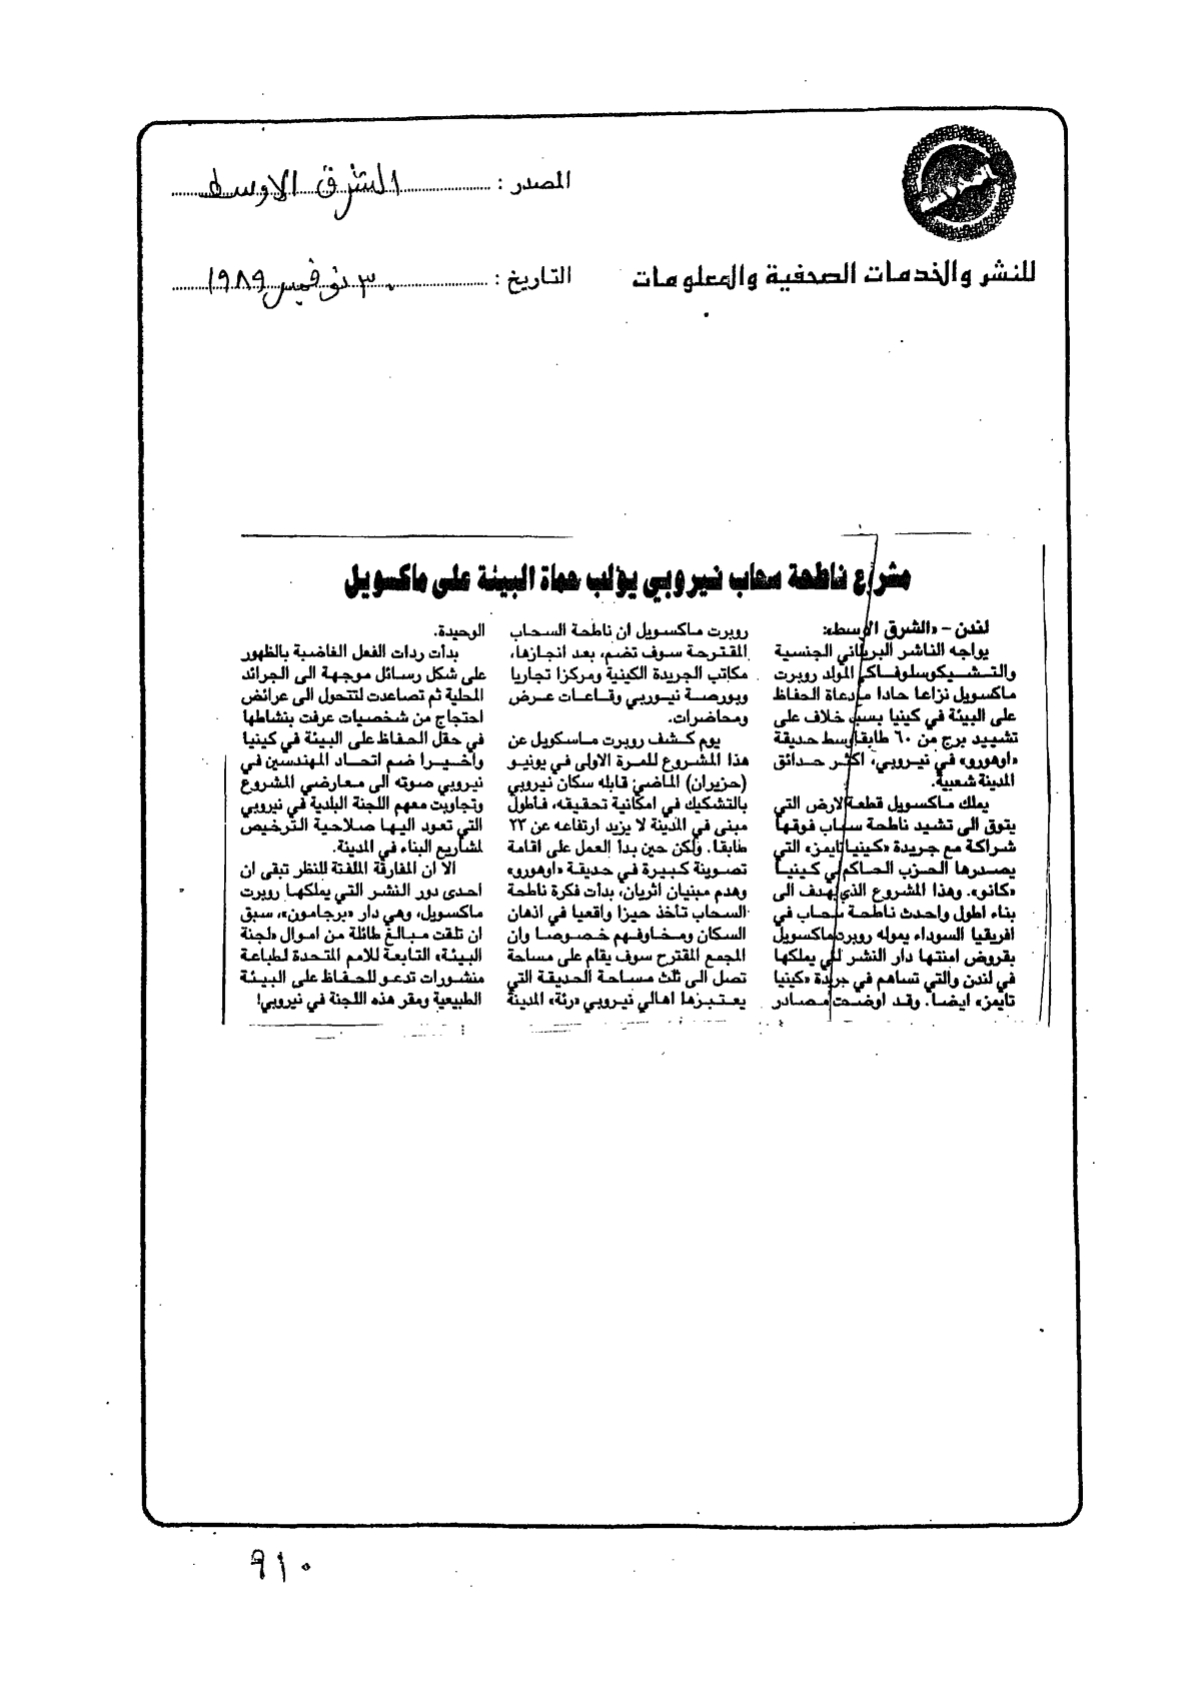 المصدر : الشرق الاوسط
للنشر والخدمات الصحفية والمعلومات
التاريخ : ٣٠ نوفمبر ١٩٨٩
مشروع ناطحة سحاب نيروبي يؤلب حماة البيئة على ماكسويل
لندن - «الشرق الاوسط»:
يواجه الناشر البريطاني الجنسية
والتشيكوسلوفاكي المولد روبرت
ماكسويل نزاعا حادا مع دعاة الحفاظ
على البيئة في كينيا بسبب خلاف على
تشييد برج من ٦٠ طابقا وسط حديقة
«اوهورو» في نيروبي، اكثر حدائق
المدينة شعبية.
يملك ماكسويل قطعة لارض التي
يتوق الى تشيد ناطحة سحاب فوقها
شراكة مع جريدة «كينيا تايمز» التي
يصدرها الحزب الحاكم في كينيا
«كانو». وهذا المشروع الذي يهدف الى
بناء اطول واحدث ناطحة سحاب في
افريقيا السوداء يموله روبرت ماكسويل
بقروض امنتها دار النشر التي يملكها
في لندن والتي تساهم في جريدة «كينيا
تايمز» ايضا. وقد اوضحت مصادر
روبرت ماكسويل ان ناطحة السحاب
المقترحة سوف تضم، بعد انجازها،
مكاتب الجريدة الكينية ومركزا تجاريا
وبورصة نيوربي وقاعات عرض
ومحاضرات.
يوم كشف روبرت ماسكويل عن
هذا المشروع للمرة الاولى في يونيو
(حزيران) الماضي، قابله سكان نيروبي
بالتشكيك في امكانية تحقيقه، فاطول
مبنى في المدينة لا يزيد ارتفاعه عن ٢٢
طابقا. ولكن حين بدأ العمل على اقامة
تصوينة كبيرة في حديقة «اوهورو»
وهدم مبنيان اثريان، بدأت فكرة ناطحة
السحاب تأخذ حيزا واقعيا في اذهان
السكان ومخاوفهم خصوصا وان
المجمع المقترح سوف يقام على مساحة
تصل الى ثلث مساحة الحديقة التي
يعتبرها اهالي نيروبي «رئة» المدينة
الوحيدة.
بدأت ردات الفعل الغاضبة بالظهور
على شكل رسائل موجهة الى الجرائد
المحلية ثم تصاعدت لتتحول الى عرائض
احتجاج من شخصيات عرفت بنشاطها
في حقل الحفاظ على البيئة في كينيا
واخيرا ضم اتحاد المهندسين في
نيروبي صوته الى معارضي المشروع
وتجاوبت معهم اللجنة البلدية في نيروبي
التي تعود اليها صلاحية الترخيص
لمشاريع البناء في المدينة.
الا ان المفارقة الملفتة للنظر تبقى ان
احدى دور النشر التي يملكها روبرت
ماكسويل، وهي دار «برجامون»، سبق
ان تلقت مبالغ طائلة من اموال «لجنة
البيئة» التابعة للامم المتحدة لطباعة
منشورات تدعو للحفاظ على البيئة
الطبيعية ومقر هذه اللجنة في نيروبي!
٩١٠